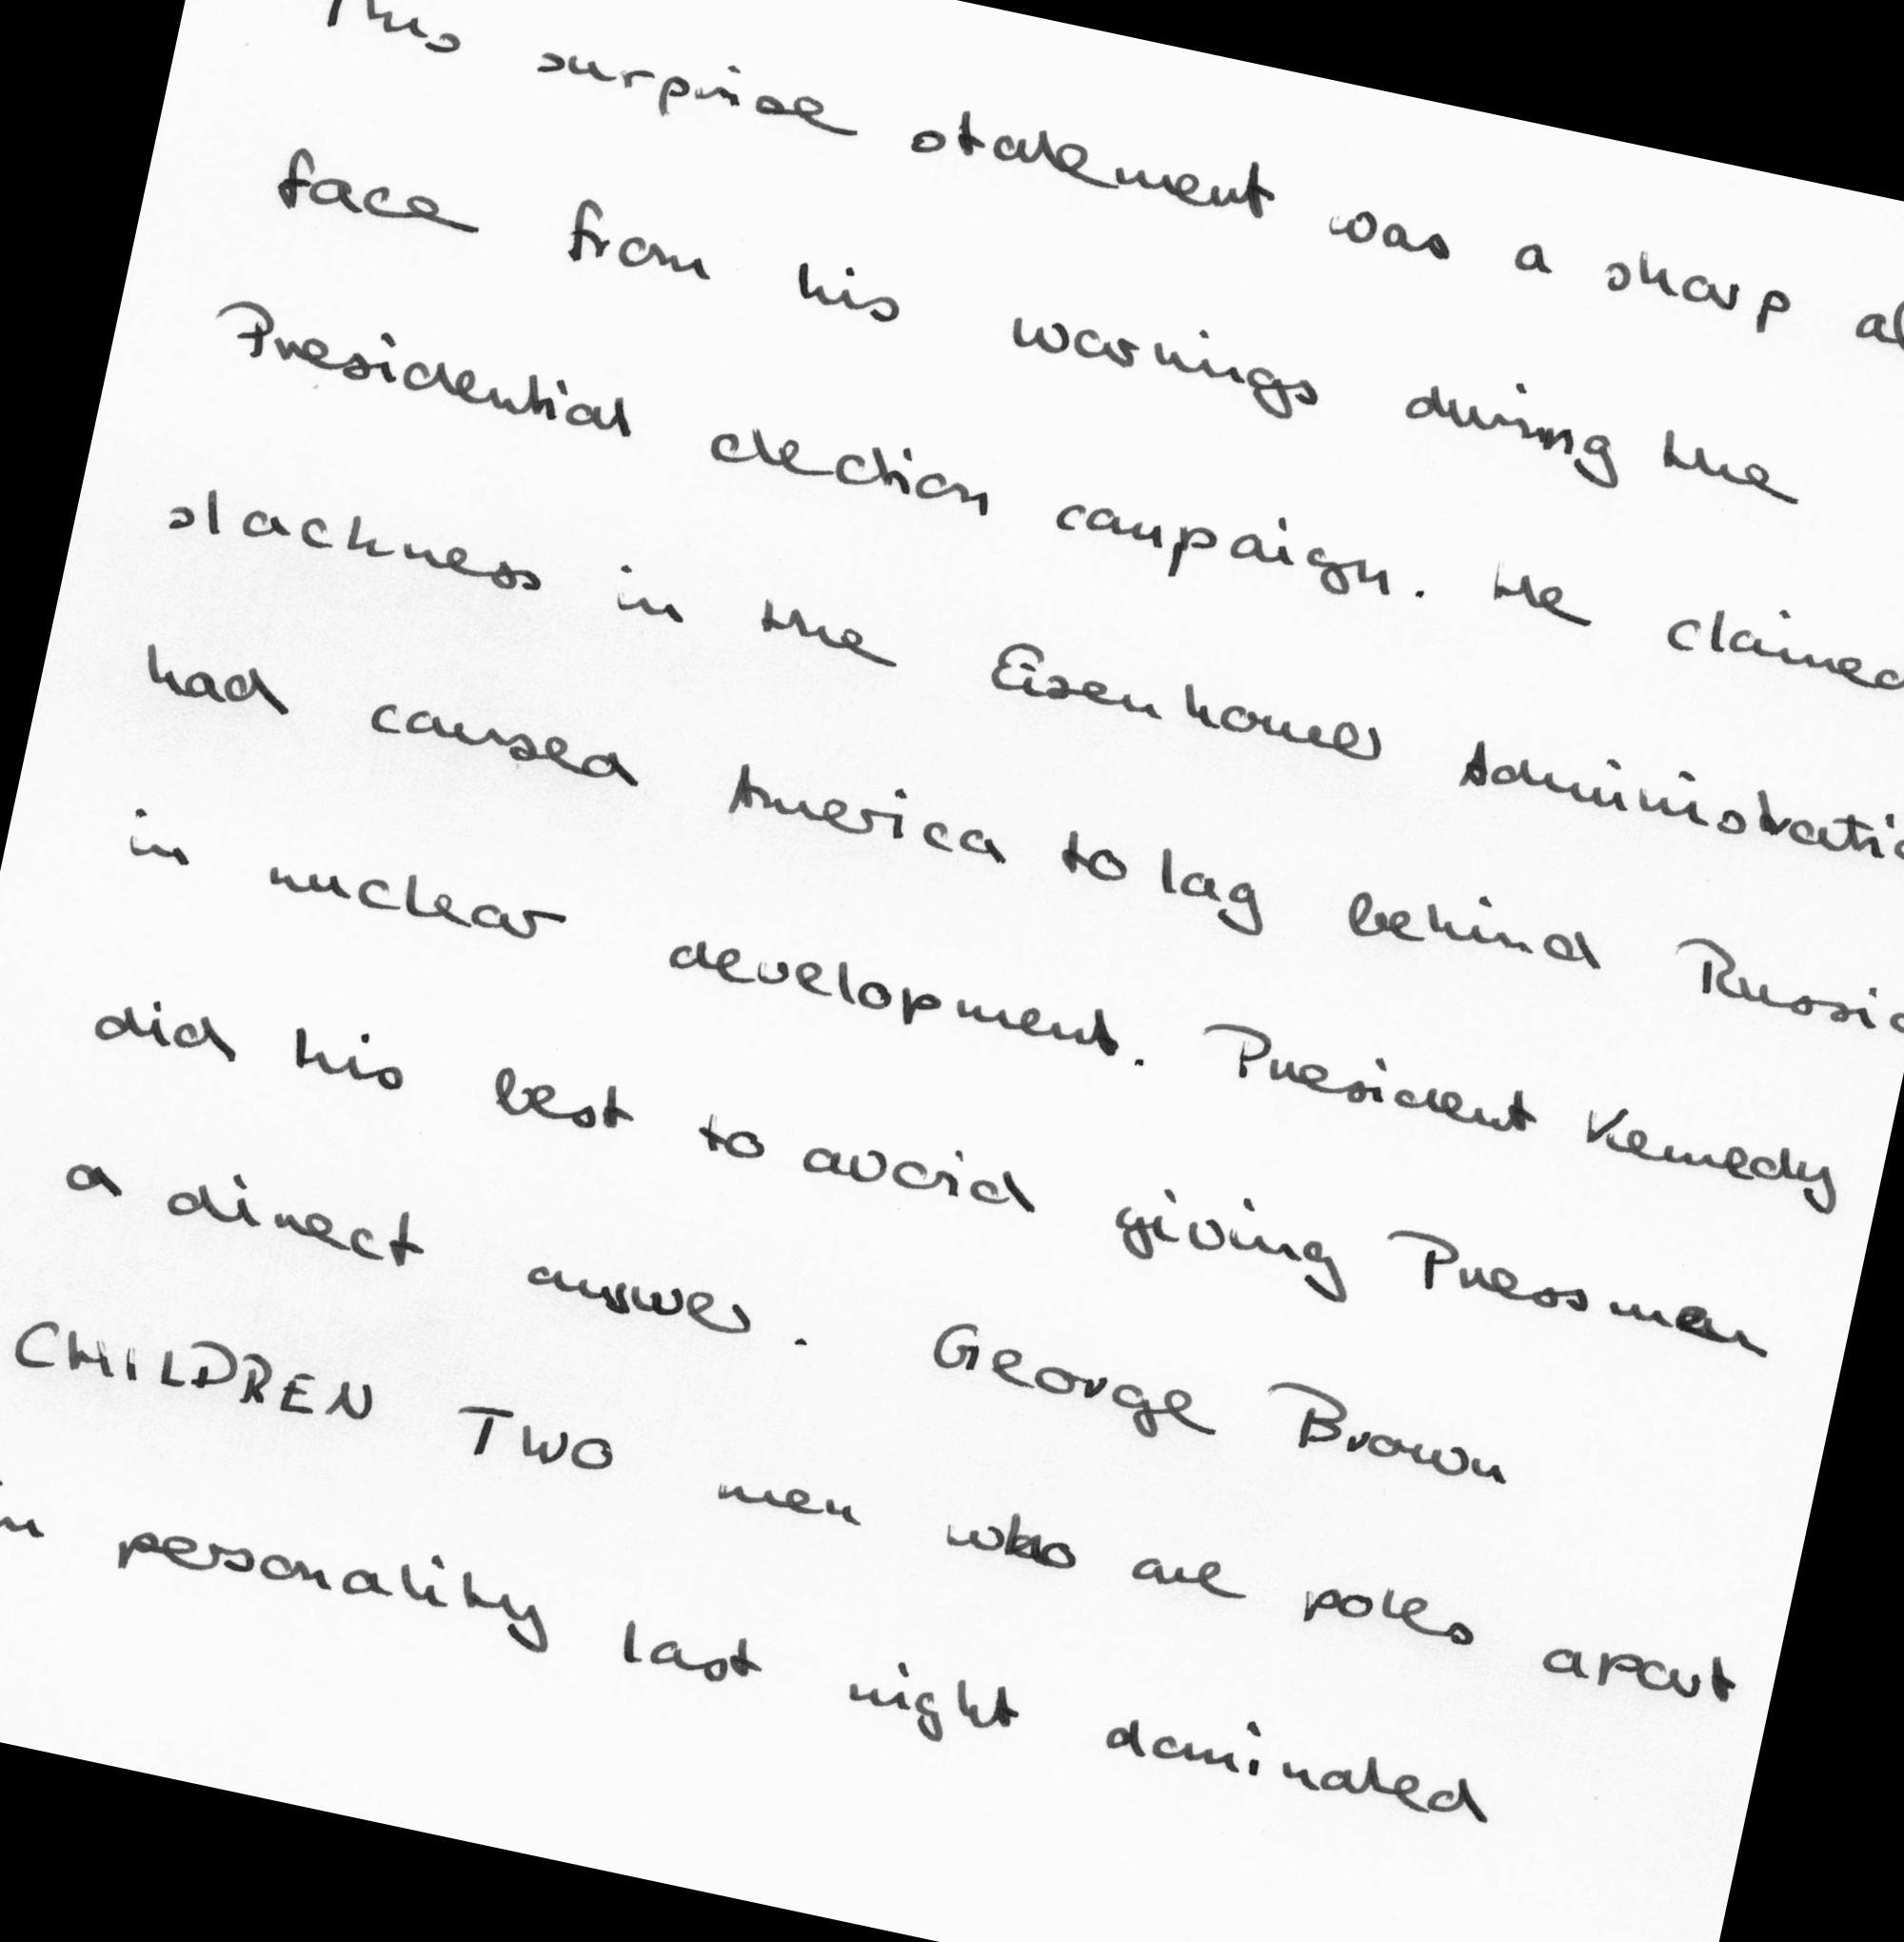 This surprise statement was a sharp
face from his warnings during the
Presidential election campaign. He claimed
slackness in the Eisenhower Administration
had caused America to lag behind Russia
in nuclear development. President Kennedy
did his best to avoid giving Pressman
a direct answer. George Brown
CHILDREN TWO men who are poles apart
in personality last night dominated